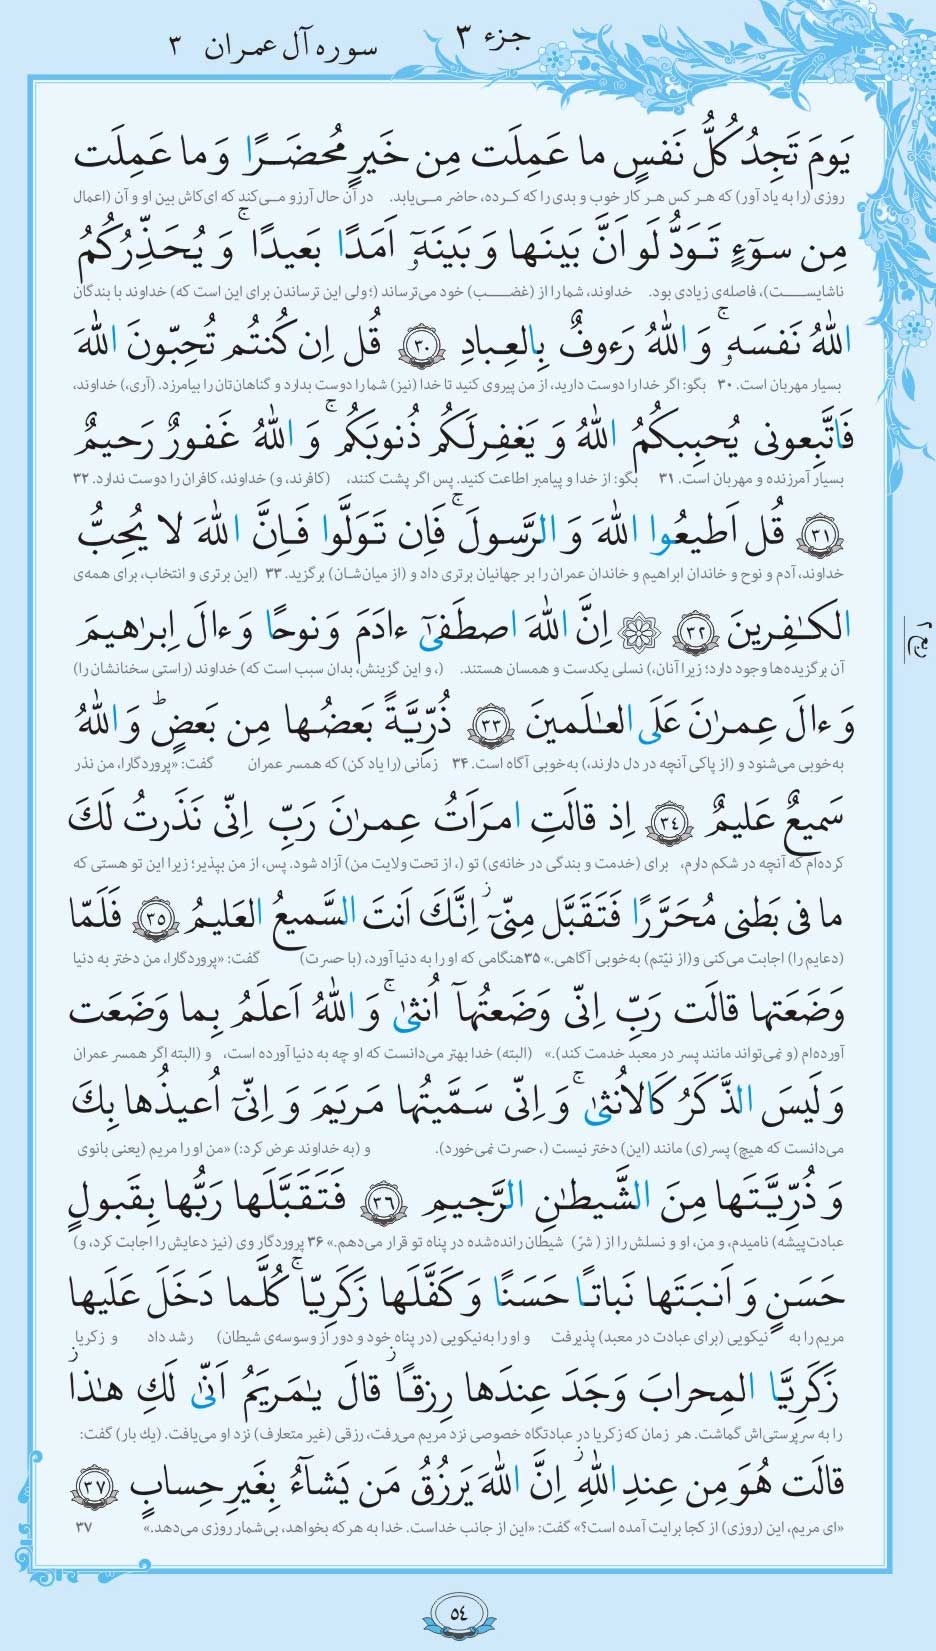 جزء ۳
سوره آل عمران ۳
يَومَ تَجِدُ كُلُّ نَفسٍ ما عَمِلَت مِن خَيرٍ مُحضَرًا وَ ما عَمِلَت
روزی (را به یاد آور) که هر کس هر کار خوب و بدی را که کرده، حاضر می‌یابد. در آن حال آرزو می‌کند که ای کاش بین او و آن (اعمال
مِن سوٓءٍ تَوَدُّ لَو اَنَّ بَينَها وَ بَينَهٓ اَمَدًا بَعيدًا ۚ وَ يُحَذِّرُكُمُ
ناشایست)، فاصله‌ی زیادی بود. خداوند، شما را از (غضب) خود می‌ترساند (؛ ولی این ترساندن برای این است که) خداوند با بندگان
اللّٰهُ نَفسَهٗ ۚ وَ اللّٰهُ رَءوفٌ بِالعِبادِ ﴿۳۰﴾ قُل اِن كُنتُم تُحِبّونَ اللّٰهَ
بسیار مهربان است. ۳۰ بگو: اگر خدا را دوست دارید، از من پیروی کنید تا خدا (نیز) شما را دوست بدارد و گناهان‌تان را بیامرزد. (آری،) خداوند،
فَاتَّبِعونی يُحبِبكُمُ اللّٰهُ وَ يَغفِرلَكُم ذُنوبَكُم ۚ وَ اللّٰهُ غَفورٌ رَحيمٌ
بسیار آمرزنده و مهربان است. ۳۱ بگو: از خدا و پیامبر اطاعت کنید. پس اگر پشت کنند، (کافرند، و) خداوند، کافران را دوست ندارد. ۳۲
﴿۳۱﴾ قُل اَطيعُوا اللّٰهَ وَ الرَّسولَ ۚ فَاِن تَوَلَّوا فَاِنَّ اللّٰهَ لا يُحِبُّ
خداوند، آدم و نوح و خاندان ابراهیم و خاندان عمران را بر جهانیان برتری داد و (از میان‌شان) برگزید. ۳۳ (این برتری و انتخاب، برای همه‌ی
الكٰفِرينَ ﴿۳۲﴾ ۞ اِنَّ اللّٰهَ اصطَفىٰٓ ءادَمَ وَ نوحًا وَ ءالَ اِبرٰهيمَ
آن برگزیده‌ها وجود دارد؛ زیرا آنان،) نسلی یکدست و همسان هستند. (، و این گزینش، بدان سبب است که) خداوند (راستی سخنانشان را)
ربع ۲
وَ ءالَ عِمرٰنَ عَلَى العٰلَمينَ ﴿۳۳﴾ ذُرِّيَّةً بَعضُها مِن بَعضٍ ۗ وَ اللّٰهُ
به‌خوبی می‌شنود و (از پاکی آنچه در دل دارند،) به‌خوبی آگاه است. ۳۴ زمانی (را یاد کن) که همسر عمران گفت: «پروردگارا، من نذر
سَميعٌ عَليمٌ ﴿۳۴﴾ اِذ قالَتِ امرَاَتُ عِمرٰنَ رَبِّ اِنّی نَذَرتُ لَكَ
کرده‌ام که آنچه در شکم دارم، برای (خدمت و بندگی در خانه‌ی) تو (، از تحت ولایت من) آزاد شود. پس، از من بپذیر؛ زیرا این تو هستی که
ما فی بَطنی مُحَرَّرًا فَتَقَبَّل مِنّیٓ ۖ اِنَّكَ اَنتَ السَّميعُ العَليمُ ﴿۳۵﴾ فَلَمّا
(دعایم را) اجابت می‌کنی و(از نیّتم) به‌خوبی آگاهی.» ۳۵هنگامی که او را به دنیا آورد، (با حسرت) گفت: «پروردگارا، من دختر به دنیا
وَضَعَتها قالَت رَبِّ اِنّی وَضَعتُهآ اُنثىٰ ۚ وَ اللّٰهُ اَعلَمُ بِما وَضَعَت
آورده‌ام (و نمی‌تواند مانند پسر در معبد خدمت کند).» (البته) خدا بهتر می‌دانست که او چه به دنیا آورده است، و (البته اگر همسر عمران
وَ لَيسَ الذَّكَرُ كَالاُنثىٰ ۚ وَ اِنّی سَمَّيتُها مَريَمَ وَ اِنّیٓ اُعيذُها بِكَ
می‌دانست که هیچ) پسر(ی) مانند (این) دختر نیست (، حسرت نمی‌خورد). و (به خداوند عرض کرد:) «من او را مریم (یعنی بانوی
وَ ذُرِّيَّتَها مِنَ الشَّيطٰنِ الرَّجيمِ ﴿۳۶﴾ فَتَقَبَّلَها رَبُّها بِقَبولٍ
عبادت‌پیشه) نامیدم، و من، او و نسلش را از ( شرّ) شیطان رانده‌شده در پناه تو قرار می‌دهم.» ۳۶ پروردگار وی (نیز دعایش را اجابت کرد، و)
حَسَنٍ وَ اَنبَتَها نَباتًا حَسَنًا وَ كَفَّلَها زَكَرِيّا ۚ كُلَّما دَخَلَ عَلَيها
مریم را به نیکویی (برای عبادت در معبد) پذیرفت و او را به‌نیکویی (در پناه خود و دور از وسوسه‌ی شیطان) رشد داد و زکریا
زَكَرِيَّا المِحرابَ وَجَدَ عِندَها رِزقًا ۖ قالَ يٰمَريَمُ اَنّىٰ لَكِ هٰذا ۖ
را به سرپرستی‌اش گماشت. هر زمان که زکریا در عبادتگاه خصوصی نزد مریم می‌رفت، رزقی (غیر متعارف) نزد او می‌یافت. (یك بار) گفت:
قالَت هُوَ مِن عِندِ اللّٰهِ ۖ اِنَّ اللّٰهَ يَرزُقُ مَن يَشآءُ بِغَيرِ حِسابٍ ﴿۳۷﴾
«ای مریم، این (روزی) از کجا برایت آمده است؟» گفت: «این از جانب خداست. خدا به هرکه بخواهد، بی‌شمار روزی می‌دهد.» ۳۷
۵۴